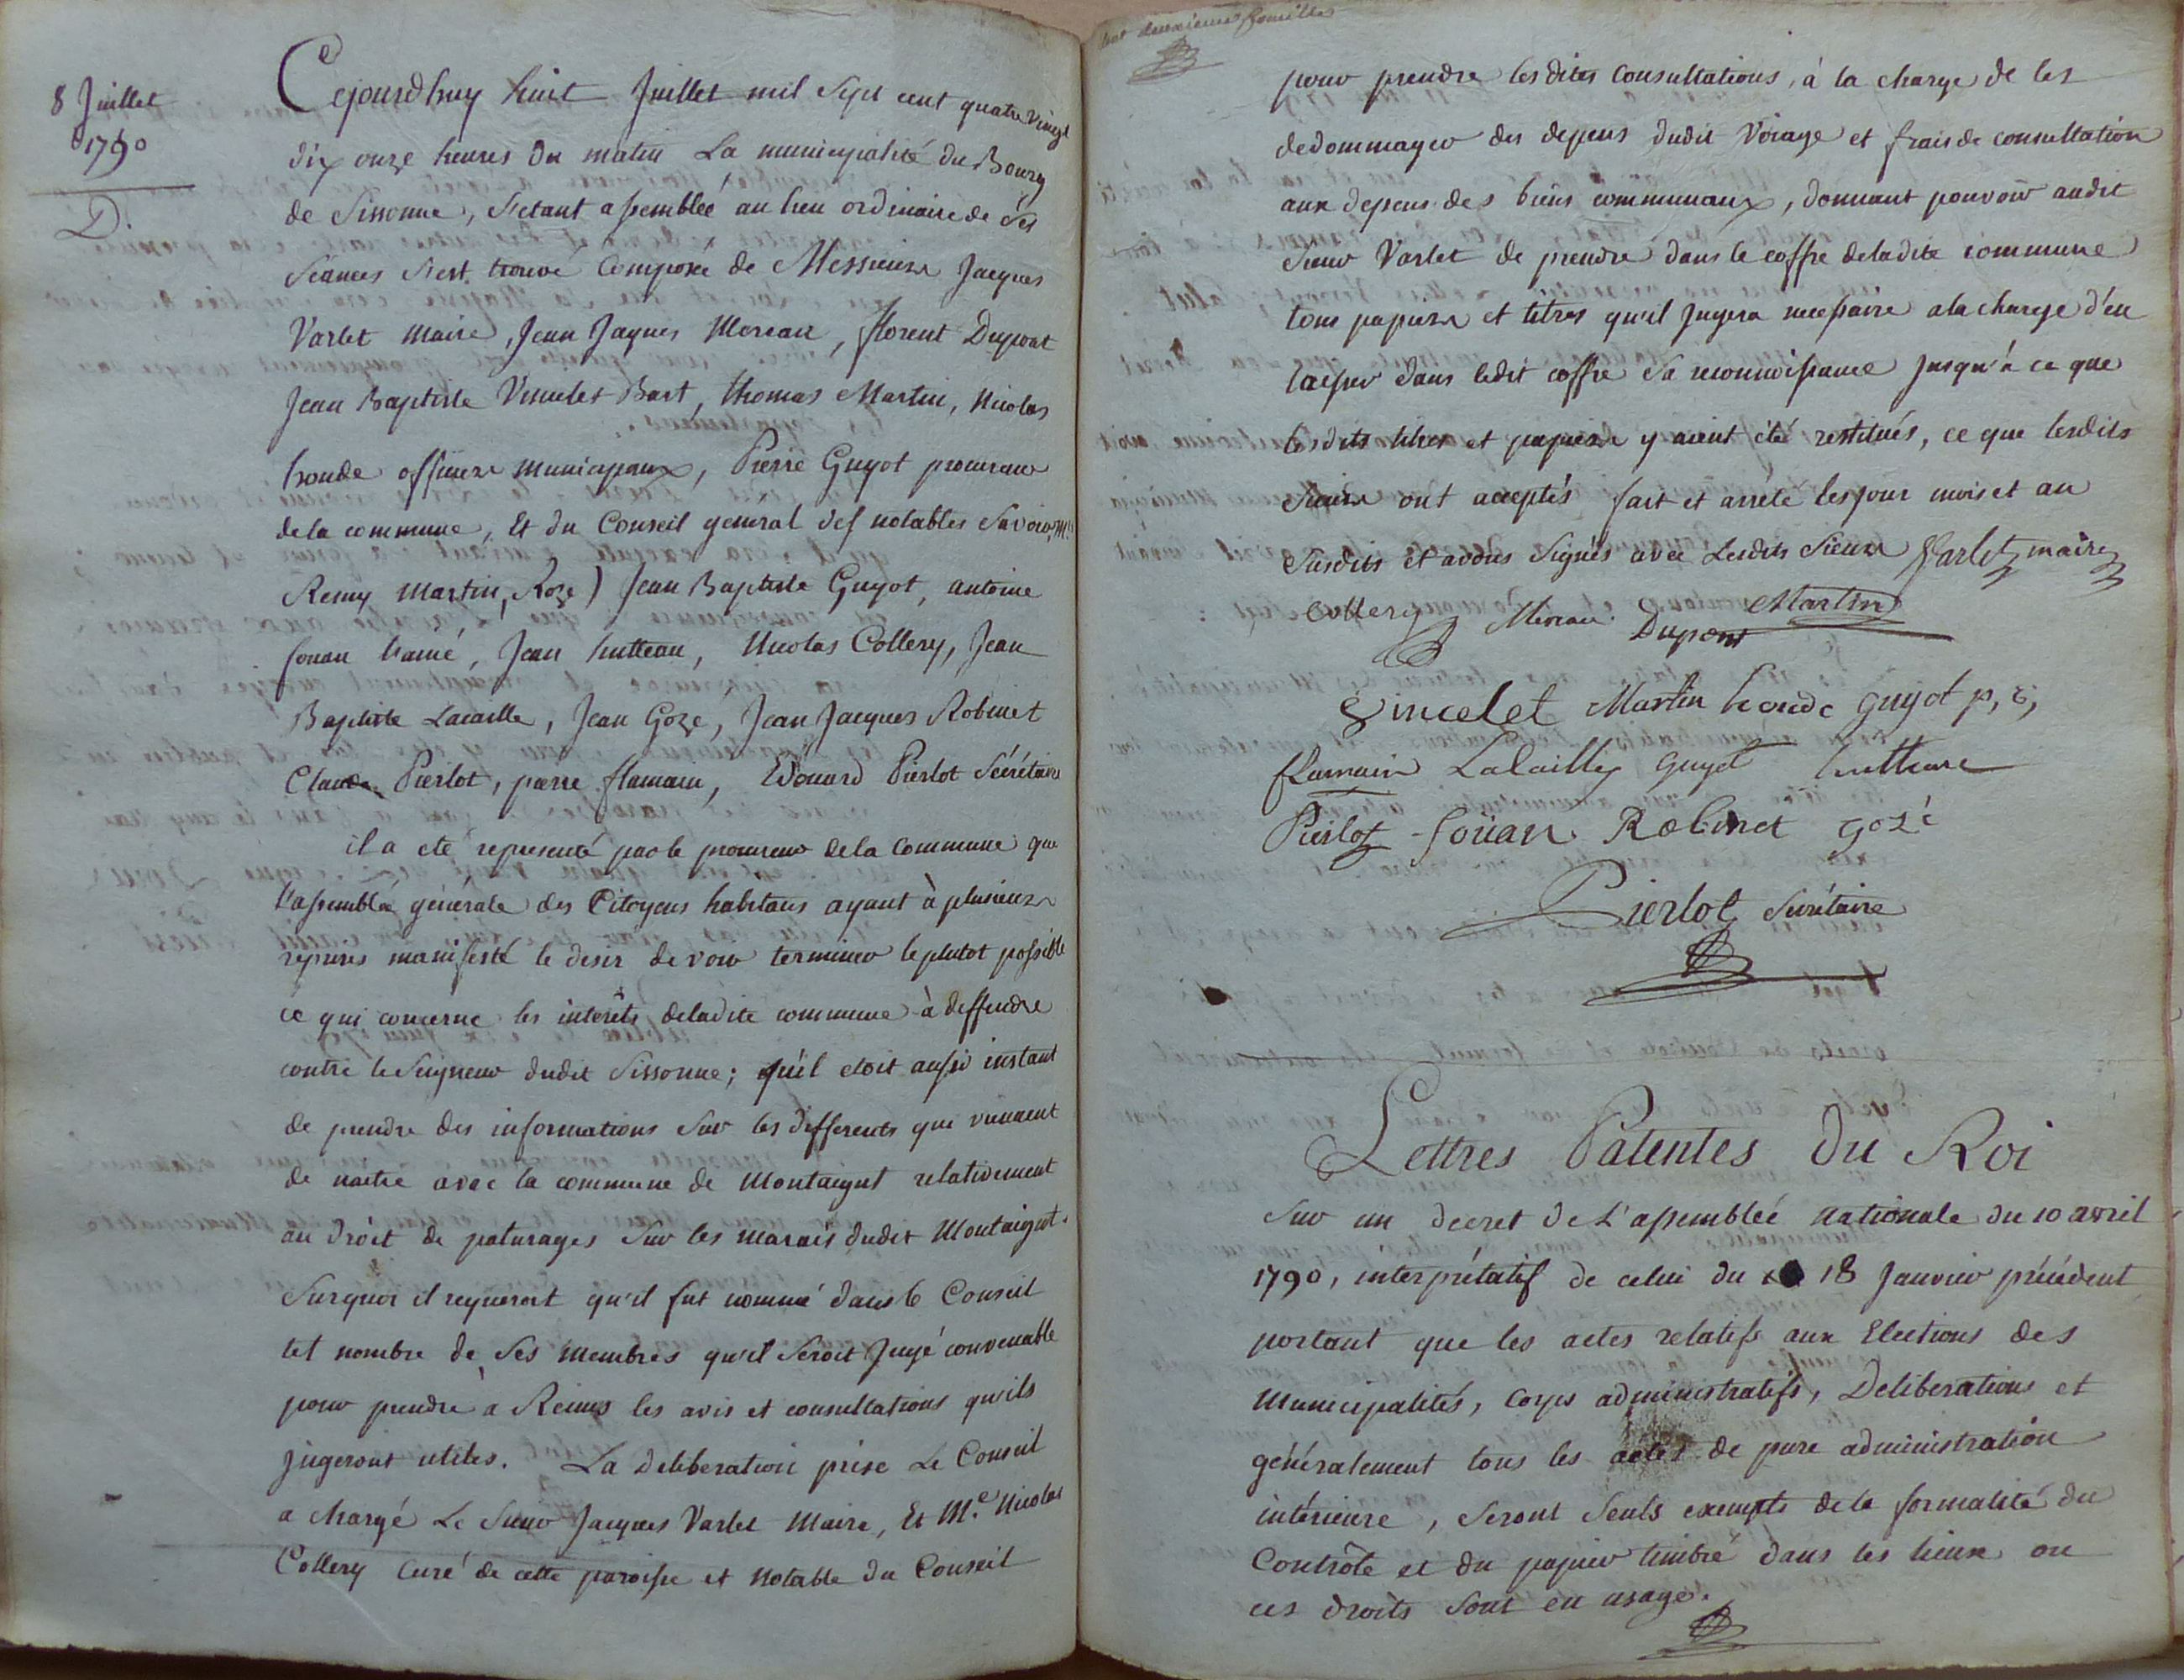 8 Juillet
1790
D.
Cejourdhuy huit Juillet mil Sept cent quatre vingt
dix onze heures du matin La municipalité du Bourg
de Sissonne, S'etant assemblée au lieu ordinaire de Ses
Séances S'est trouvé Composée de Messieurs Jacques
Varlet Maire, Jean Jaques Moreau, florent Dupont
Jean Baptiste Vincelet Bart, thomas Martin, Nicolas
houde officiers municipaux, Pierre Guyot procureur
de la commune, Et du Conseil général des notables Savoir, Mrs
Remy Martin, Roze) Jean Baptiste Guyot, antoine
fouan l'ainé, Jean hutteau, Nicolas Collery, Jean
Baptiste Lacaille, Jean Gozé, Jean Jacques Robinet
Claude Pierlot, pierre flamain, Edouard Pierlot Sécrétaire
il a eté représenté par le procureur de la Commune que
l'assemblée générale des Citoyens habitans ayant à plusieurs
reprises manifesté le desir de voir terminer le plutot possible
ce qui concerne les intérêts deladite commune à deffendre
contre le Seigneur dudit Sissonne; qu'il etoit aussi instant
de prendre des informations Sur les differents qui viennent
de naitre avec la commune de Montaigut relativement
au droit de paturages Sur les marais dudit Montaigut.
Surquoi il requeroit qu'il fut nommé dans le Conseil
tel nombre de Ses membres qu'il Seroit Jugé convenable
pour prendre à Reims les avis et consultations qu'ils
jugeront utiles. La Deliberation prise Le Conseil
a chargé Le Sieur Jacques Varlet Maire, Et Me. Nicolas
Collery Curé de cette paroisse et Notable du Conseil
cent deuxieme feuillet
pour prendre lesdites Consultations, à la charge de les
dedommager des depens dudit Voiage et frais de consultation
aux depens des biens communaux, donnant pouvoir audit
Sieur Varlet de prendre dans le coffre deladite commune
tous papiers et titres qu'il Jugera necessaire ala charge d'en
laisser dans ledit coffre Sa reconnoissance Jusqu'à ce que
lesdits titres et papiers y aient été restitués, ce que lesdits
Sieurs ont acceptés fait et arrêté les jour mois et an
Susdits et avons Signés avec Lesdits Sieurs Varlet maire
Collery Moreau Dupont Martin
Vincelet Martin houde guyot p, c,
flamain Lacaille Guyot hutteau
Pierlot foüan Robinet gozé
Pierlot Secrétaire
Lettres Patentes Du Roi
Sur un decret de L'assemblée Nationale du 10 avril
1790, interprétatif de celui du 18 Janvier précédent
portant que les actes relatifs aux Elections des
Municipalités, Corps administratifs, Deliberations et
généralement tous les actes de pure administration
intérieure, Seront Seuls exempts de la formalité du
Contrôle et du papier timbré dans les lieux ou
ces droits Sont en usage.